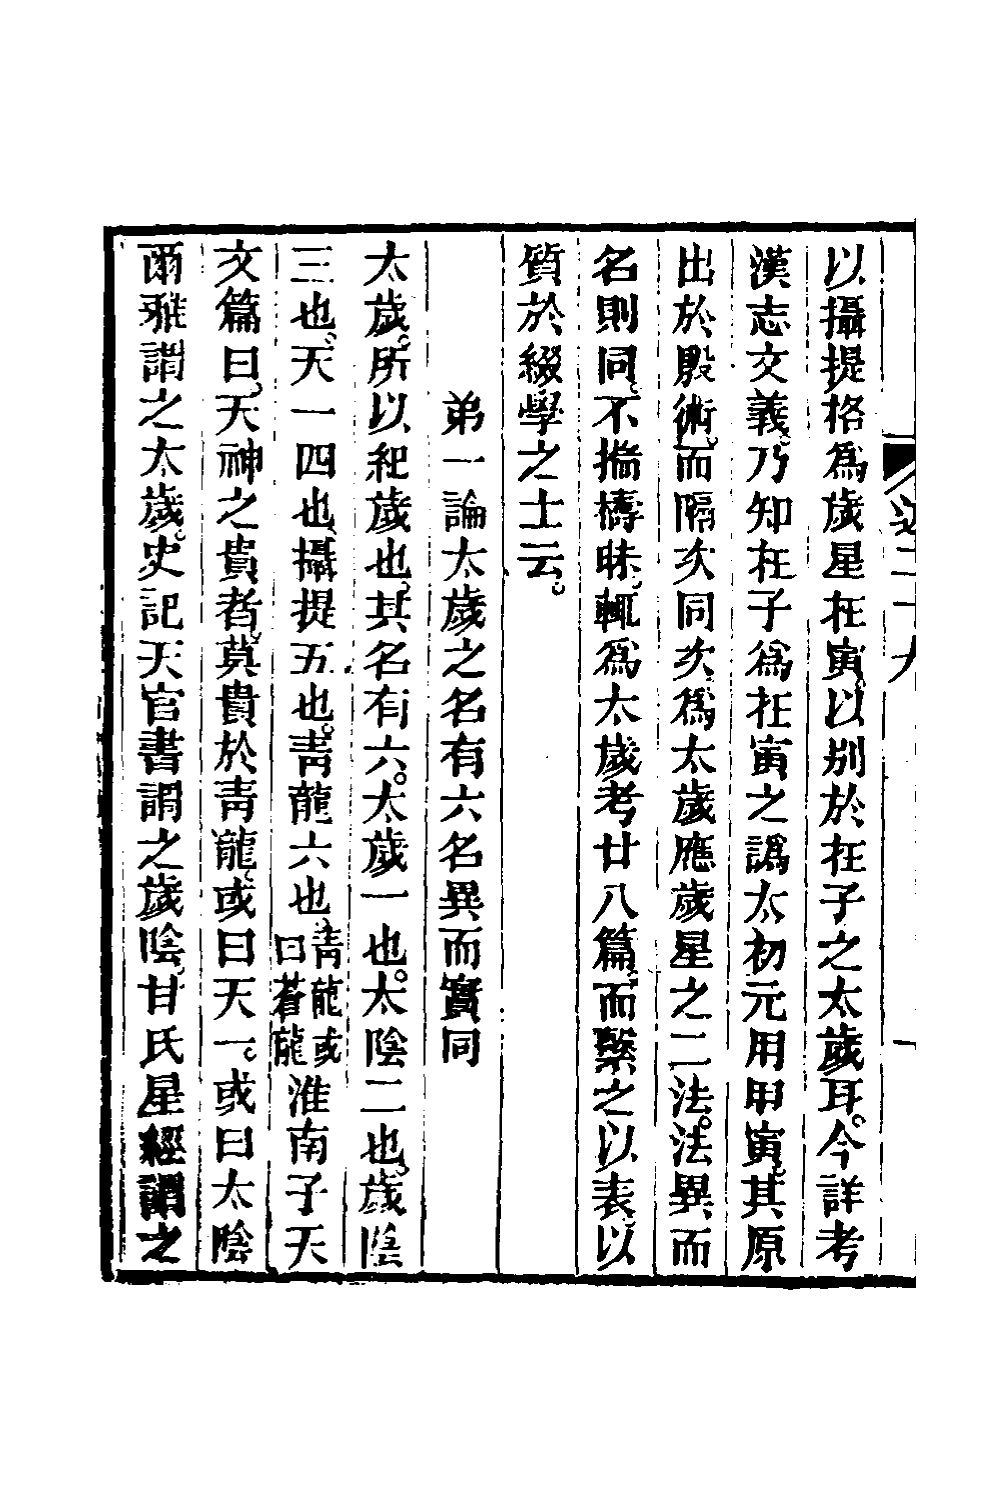 以攝提格爲歲星在寅以別於在子之太歲耳今詳考
漢志文義乃知在子爲在寅之譌太初元用甲寅其原
出於殷術而隔次同次爲太歲應歲星之二法法異而
名則同不揣檮昧輒爲太歲考廿八篇而繫之以表以
質於綴學之士云
弟一論太歲之名有六名異而實同
太歲所以紀歲也其名有六太歲一也太陰二也歲陰
三也天一四也攝提五也靑龍六也靑龍或曰蒼龍淮南子天
文篇曰天神之貴者莫貴於靑龍或曰天一或曰太陰
爾雅謂之太歲史記天官書謂之歲陰甘氏星經謂之